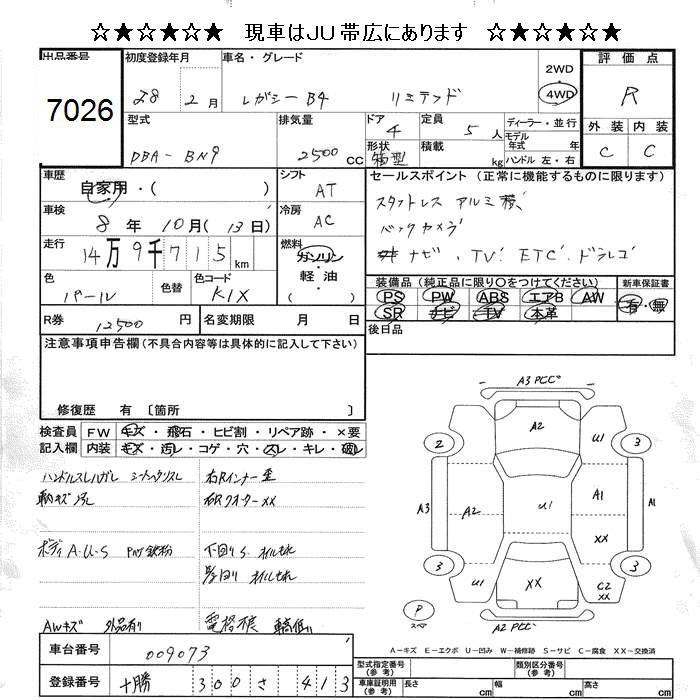 ☆★☆★☆ 現車はJU帯広にあります ☆★☆★☆
出品番号
7026
初度登録年月
28 2月
車名・グレード
レガシーB4 リミテッド
2WD
4WD
評価点
R
外装 内装
C C
型式
DBA-BN9
排気量
2500 CC
ドア
4
定員
5人
形状
箱型
積載
kg
ディーラー・並行
モデル年式 年式
ハンドル 左・右
車歴
自家用・( )
シフト
AT
車検
8年10月(13日)
冷房
AC
走行
14万9千715km
燃料
ガソリン
軽・油
( )
色
パール
色替
色コード
K1X
R券
12500円
名変期限 月 日
セールスポイント(正常に機能するものに限ります)
スタットレス アルミ積
バックカメラ
ナビ、TV ETC ドラレコ
装備品(純正品に限り○をつけてください)
PS PW ABS エアB AW
SR ナビ TV 本革
新車保証書
有・無
後日品
注意事項申告欄(不具合内容等は具体的に記入して下さい)
修復歴 有 〔箇所 〕
検査員記入欄
FW キズ・飛石・ヒビ割・リペア跡・×要
内装 キズ・汚レ・コゲ・穴・スレ・キレ・破レ
ハンドルスレハガレ
右Rインナー歪
右RクオーターXX
ボディA.U.S PW鉄粉
下回りS オイルもれ
オイルもれ
AWキズ 外品有り
車台番号
009073
登録番号
十勝 300 さ 413
A3
A2
U1
2
3
A3
A2
U1
A1
A1
XX
3
3
U1
XX
C2
XX
P
スペア
A-キズ E-エクボ U-凹み W-補修跡 S-サビ C-腐食 XX-交換済
型式指定番号(参考)
類別区分番号(参考)
車庫証明用(参考)
長さ cm
幅 cm
高さ cm